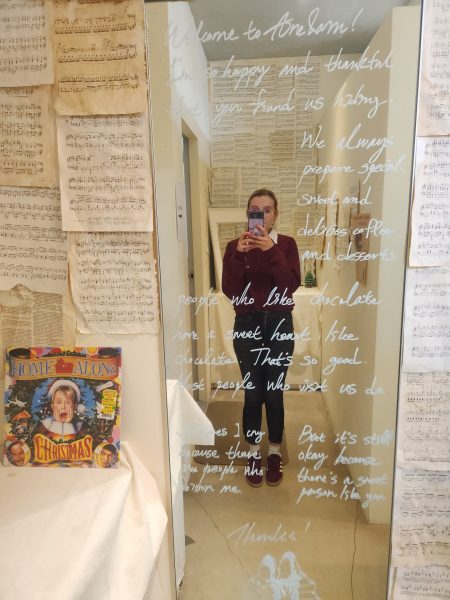 Welcome to Abraham!
I'm so happy and thankful
that you found us today.
We always
prepare special,
sweet and
delicious coffee
and desserts
people who like chocolate
have a sweet heart like
chocolate. That's so good.
Most people who visit us do
Sometimes I cry
because there
are people who
me.
But it's still
okay because
there's a sweet
person like you
Thanks!
HOME ALONE
CHRISTMAS